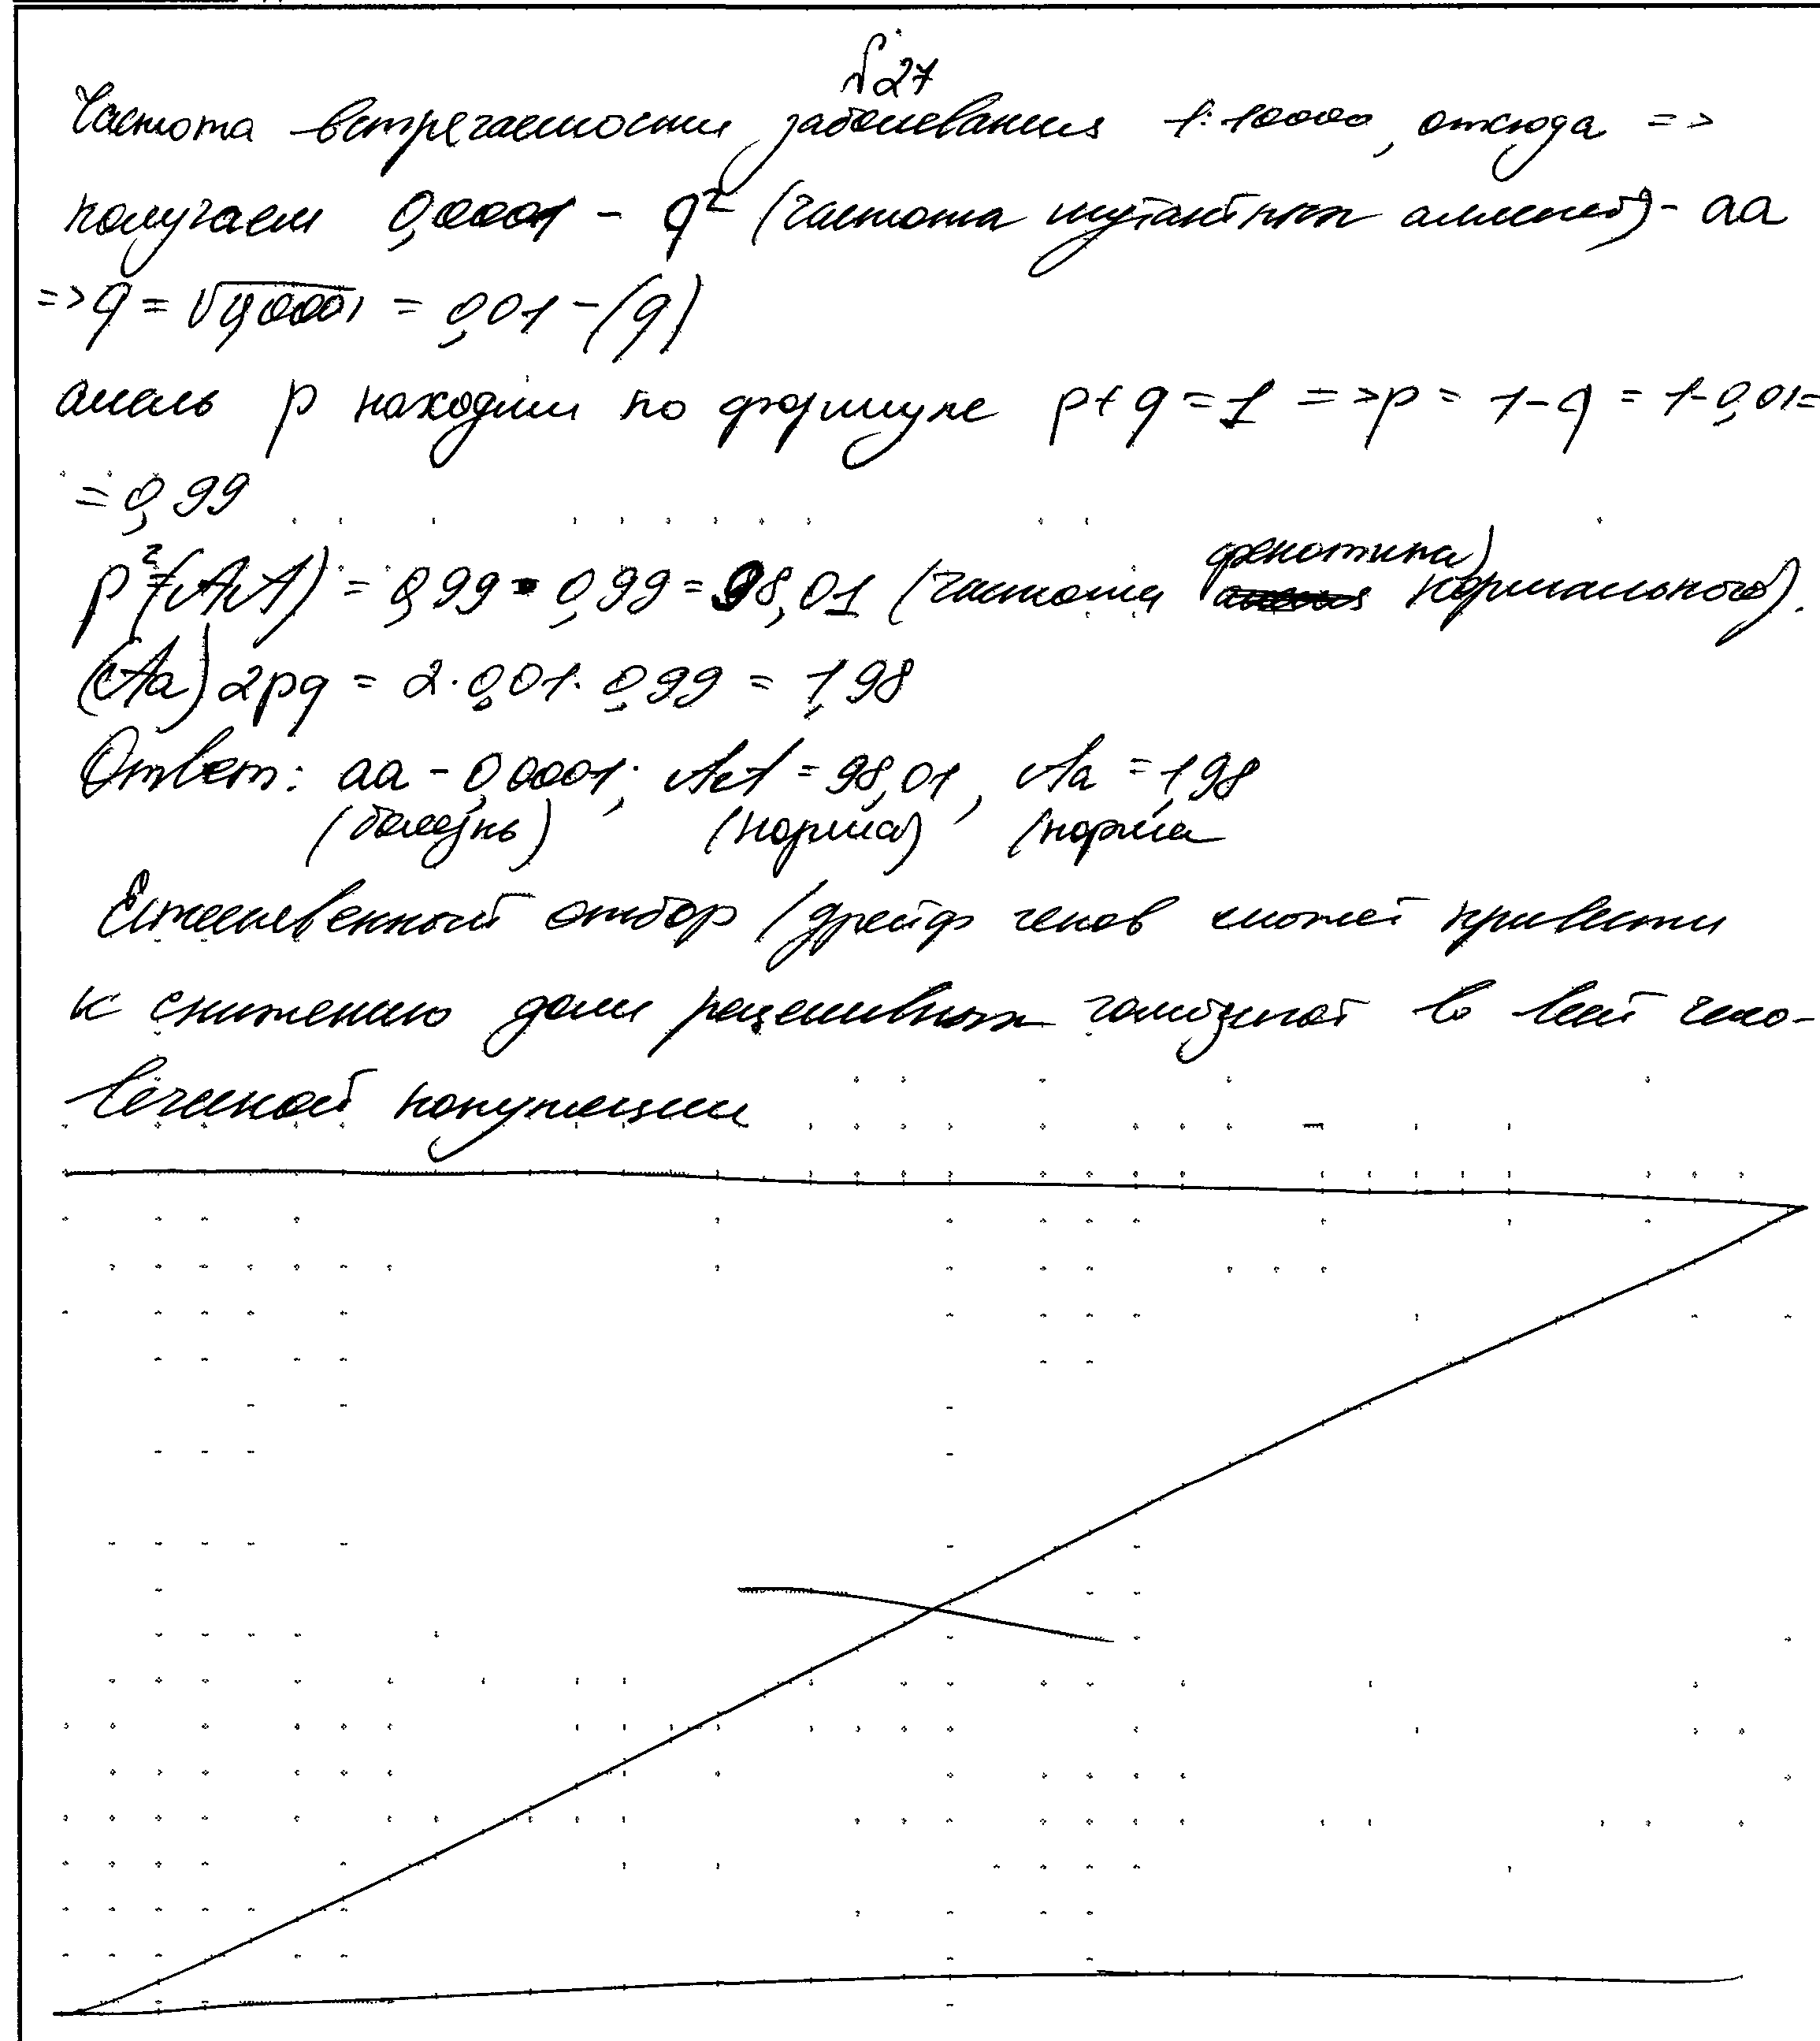 №27
Частота встречаемости заболевания 1:10000, отсюда =>
получаем 0,0001 - q² (частота мутантных аллелей) - aa
=> q = √0,0001 = 0,01 - (q)
алель p находим по формуле p+q=1 => p = 1-q = 1-0,01=
= 0,99
p²(AA) = 0,99 · 0,99 = 98,01 (частота фенотипа) нормального).
(Aa) 2pq = 2·0,01·0,99 = 1,98
Ответ: aa - 0,0001; AA = 98,01, Aa = 1,98
(болезнь) (норма) (норма
Естественный отбор / дрейф генов может привести
к снижению доли рецессивных гомозигот во всей чело-
веческой популяции